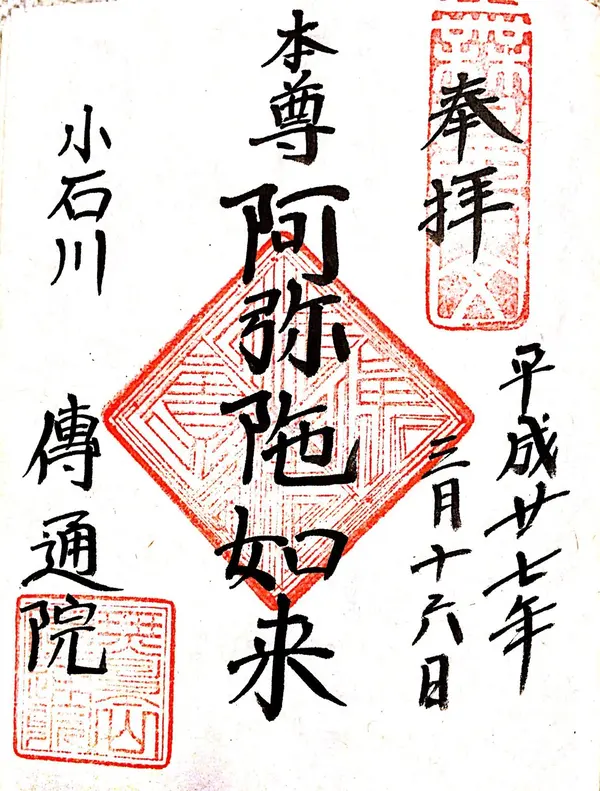 奉拝
平成廿七年
三月十六日
本尊
阿弥陁如来
小石川
傳通院